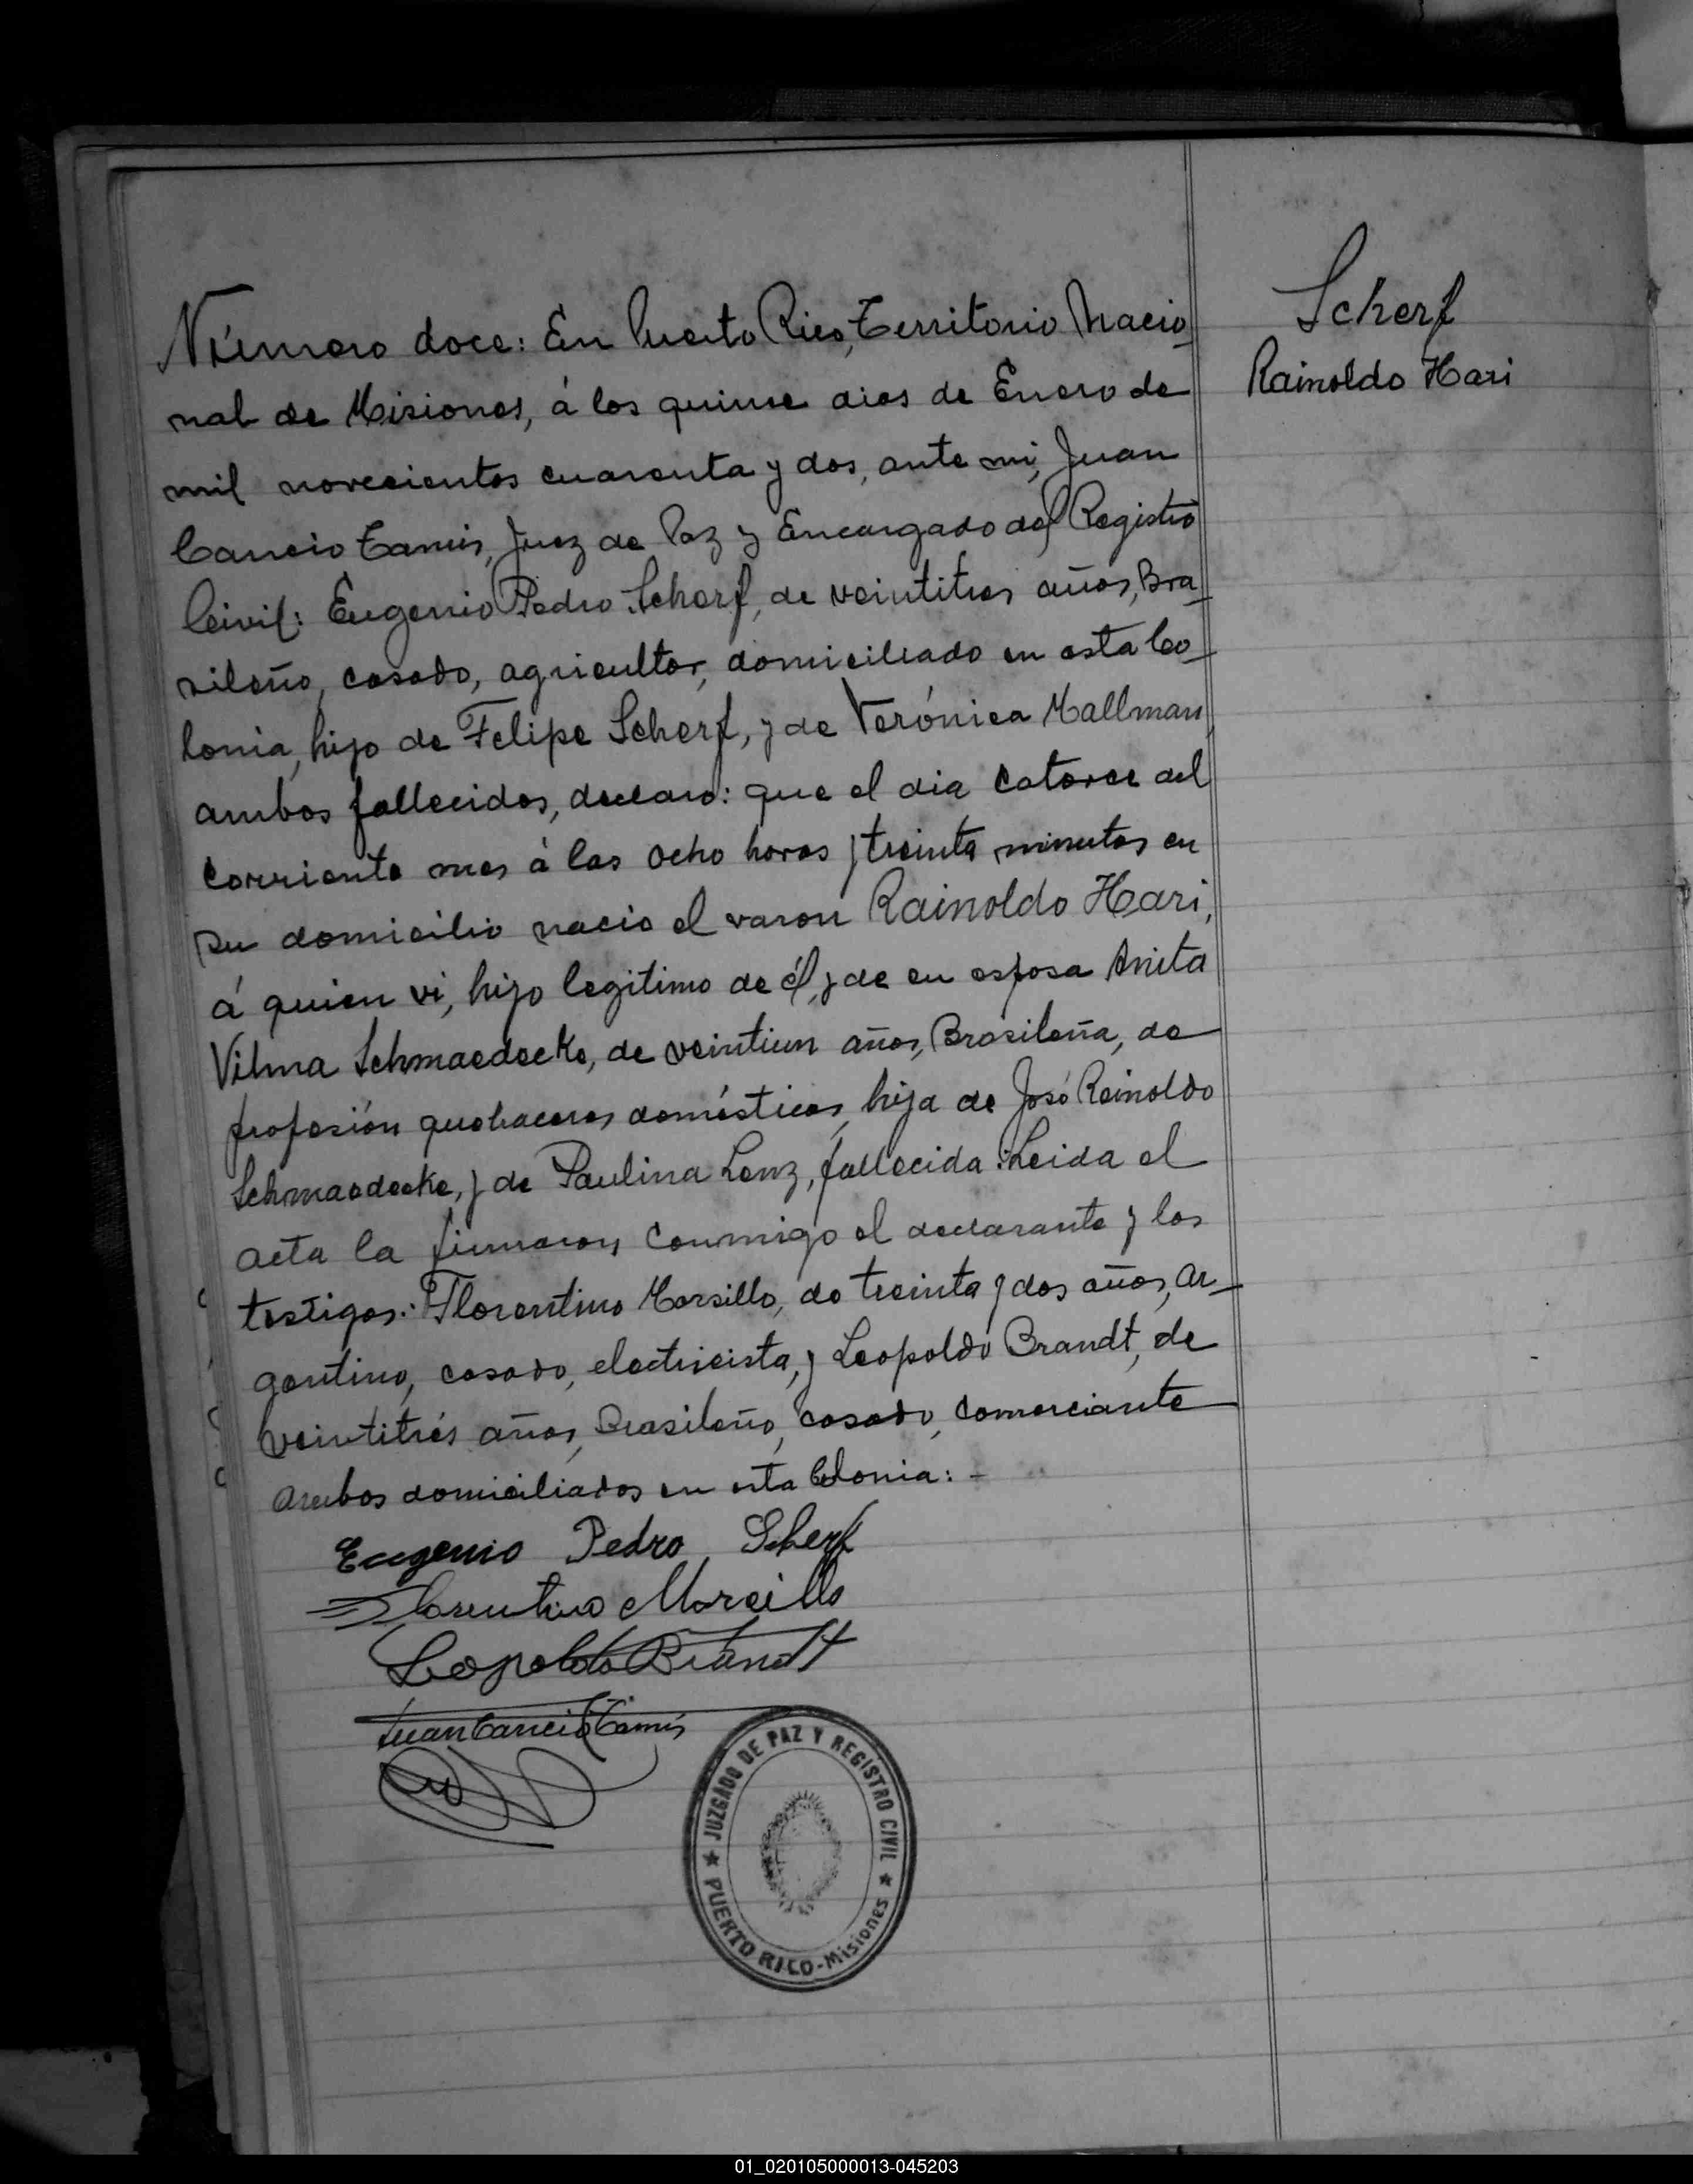 Número doce: En Puerto Rico, Territorio Nacio_
nal de Misiones, á los quince dias de Enero de
mil novecientos cuarenta y dos, ante mi, Juan
Cancio Tamis, Juez de Paz y Encargado del Registro
Civil: Eugenio Pedro Scherf, de veintitres años, Bra_
sileño, casado, agricultor, domiciliado en esta Co_
lonia, hijo de Felipe Scherf, y de Verónica Mallman,
ambos fallecidos, declaro: que el dia catorce del
corriente mes á las ocho horas y treinta minutos en
su domicilio nacio el varon Rainoldo Hari,
á quien vi, hijo legitimo de él, y de su esposa Anita
Vilma Schmaedecke, de veintiun años, Brasileña, de
profesión quehaceres domésticos, hija de José Reinoldo
Schmaedecke, y de Paulina Lenz, fallecida. Leida el
acta la firmaron conmigo el declarante y los
testigos: Florentino Morsillo, de treinta y dos años, Ar_
gentino, casado, electricista, y Leopoldo Brandt, de
veintitrés años, Brasileño, casado, comerciante
ambos domiciliados en esta Colonia: -
Eugenio Pedro Scherf
Florentino Morcillo
Leopoldo Brandt
Juan Cancio Tamis
JUZGADO DE PAZ Y REGISTRO CIVIL
PUERTO RICO - Misiones
Scherf
Rainoldo Hari
01_020105000013-045203